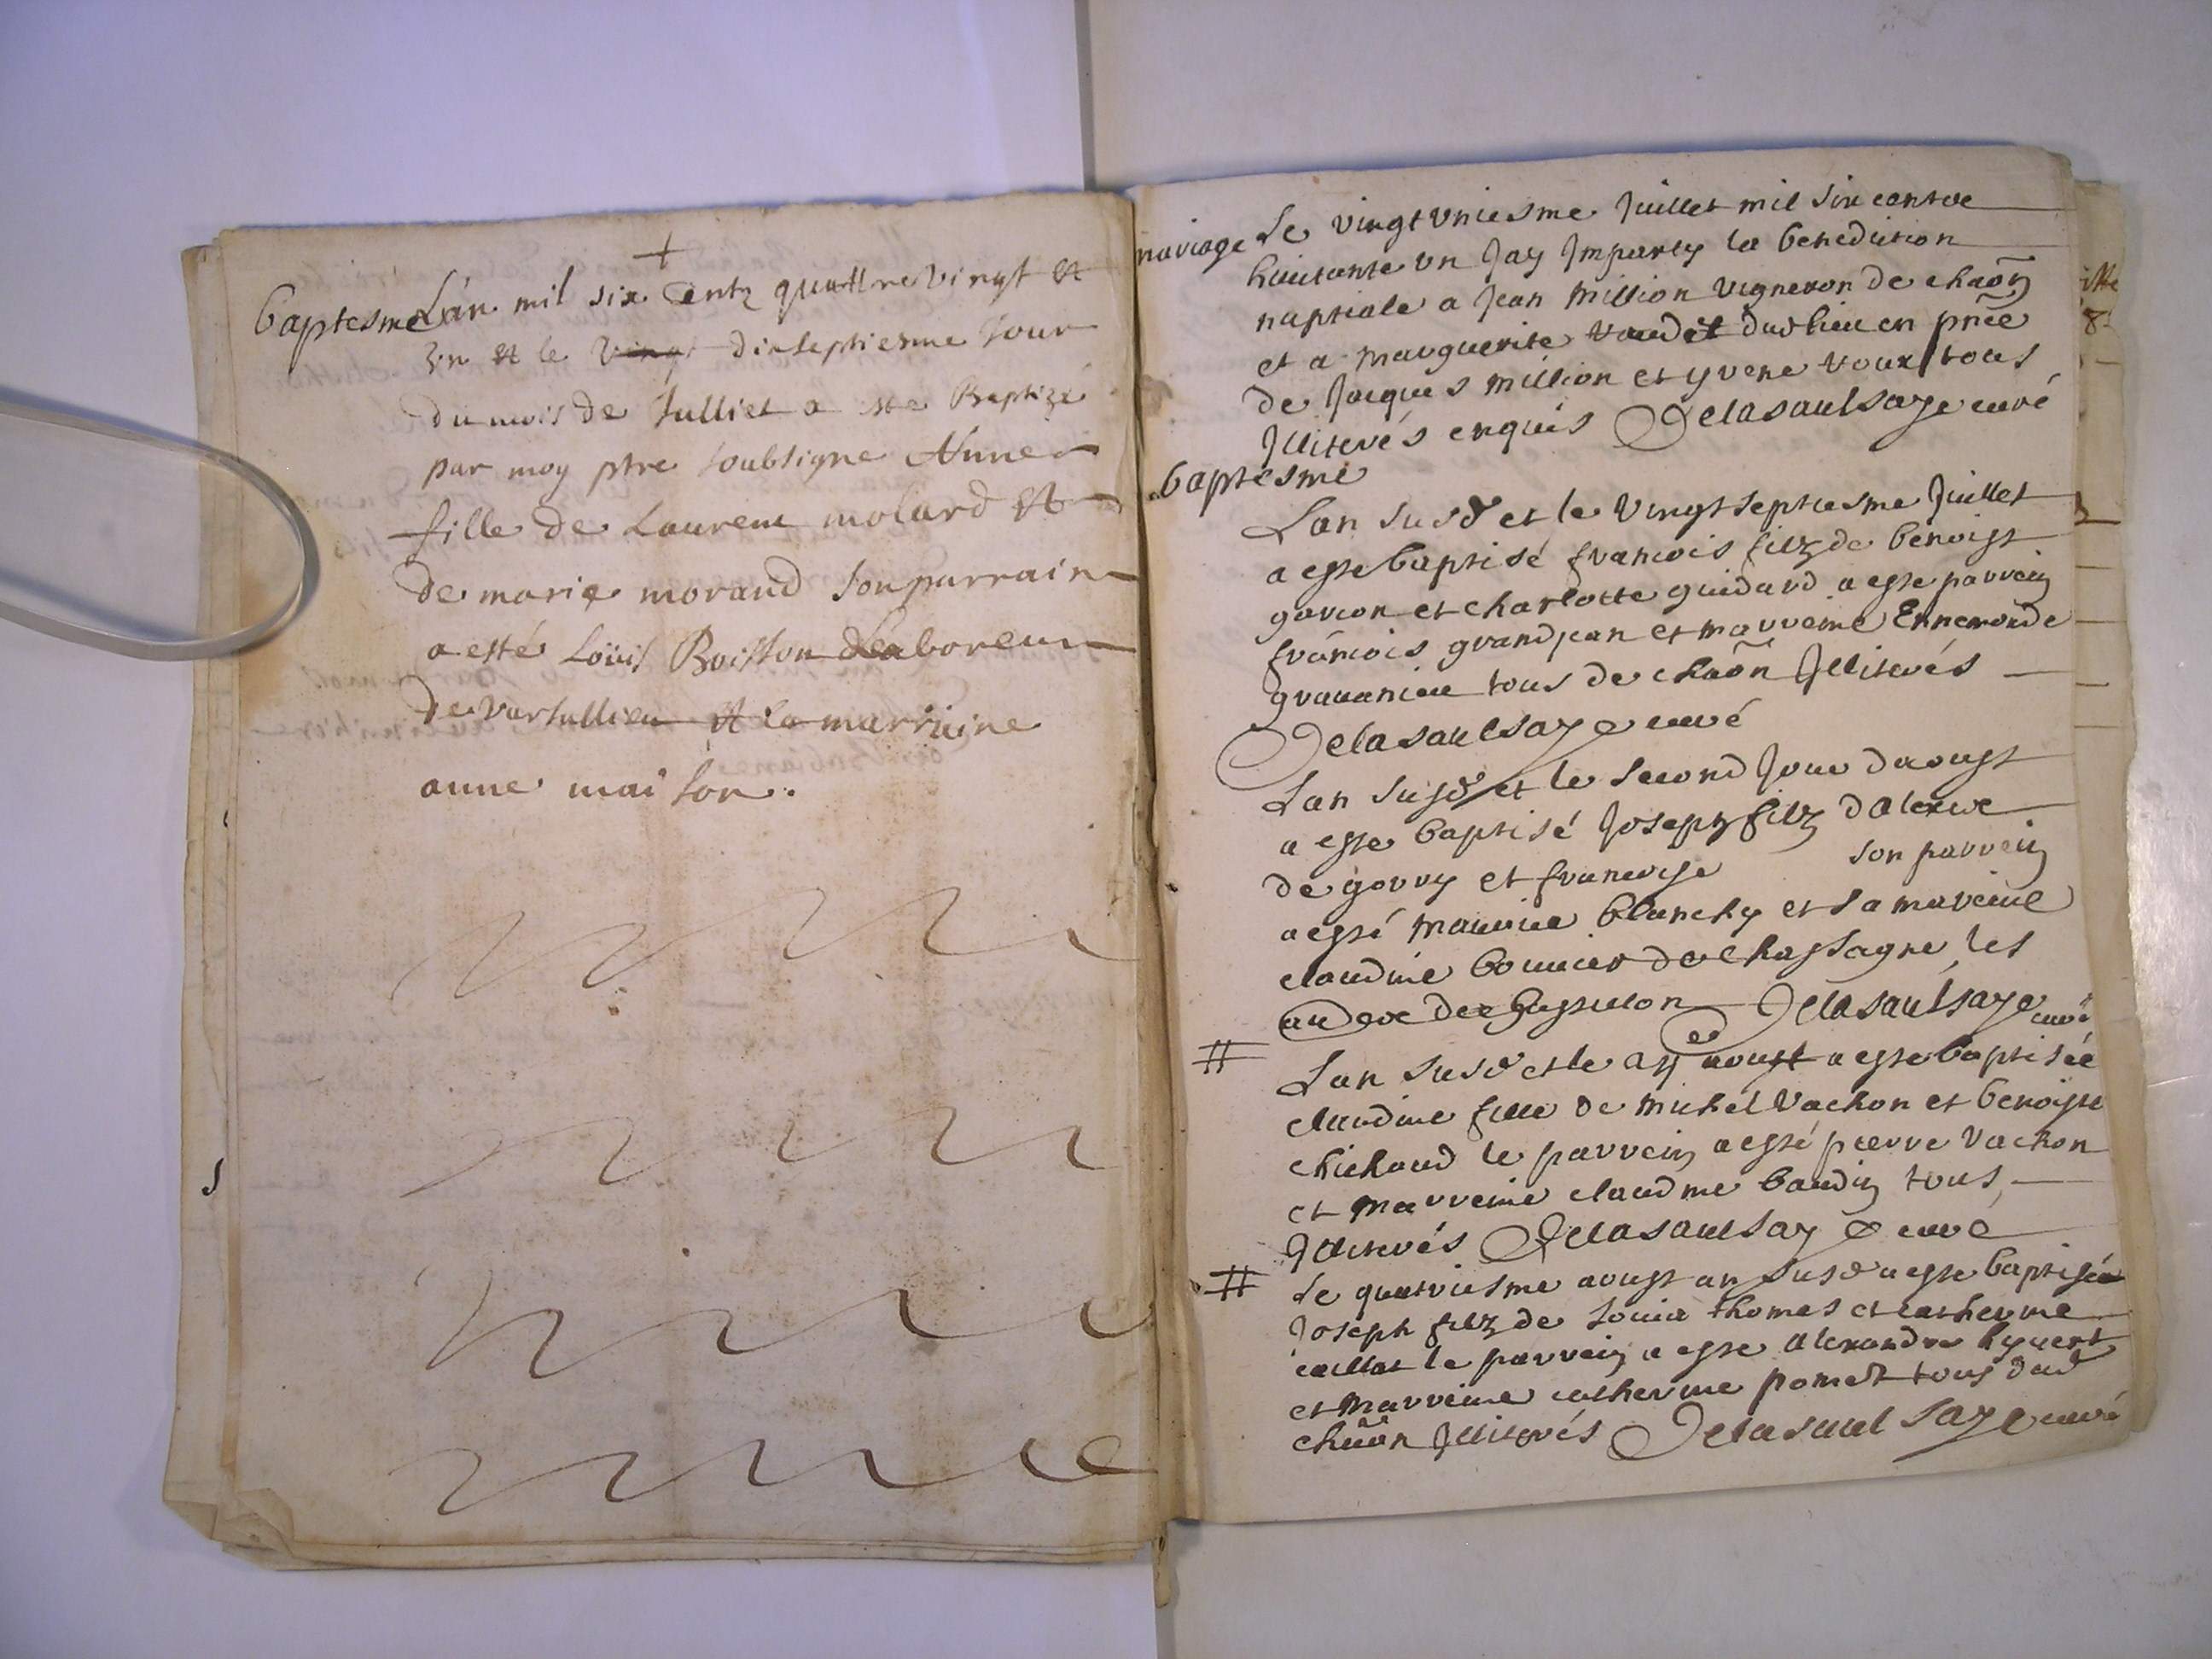 +
baptesme Lan mil six Centz quattre vingt et
Un et le vingt dixseptiesme Jour
du mois de Julliet a este Baptizé
par moy ptre soubsigne Anne
fille de Laurent molard et
de marie morand son parrain
a esté Loüis Boisson Laboreur
de Varsallieu et la marraine
anne maison.
mariage Le vingt uniesme Juillet mil six cent
huictante un Jay Imparty la benediction
nuptiale a Jean Million vigneron de chaōn
et a marguerite vaudet dud lieu en pnce
de Jacques million et yvene tous
Jlliterés enquis Delasaulsaye curé
baptesme
Lan susd et le vingt septiesme Juillet
a este baptisé francois filz de benoist
garcon et charlotte guidard a este parrein
francois grandjean et marreine Ennemonde
tous de chaōn Jlliterés
Delasaulsaye curé
Lan susd et le second Jour daoust
a este baptisé Joseph filz
de gorry et francoise son parrein
a esté maurice blanchy et sa mareine
claudine de chassagne les
Delasaulsaye curé
Lan susd et le aoust a este baptisée
claudine fille de michel Vachon et benoiste
chichoud le parrein a esté pierre Vachon
et marreine claudine baudin tous
Jlliterés Delasaulsaye curé
Le quatriesme aoust an susd a este baptisé
Joseph filz de thomas et catherine
caillat le parrein a este alexandre
et marreine catherine pomet tous dud
chaōn Jlliterés Delasaulsaye curé